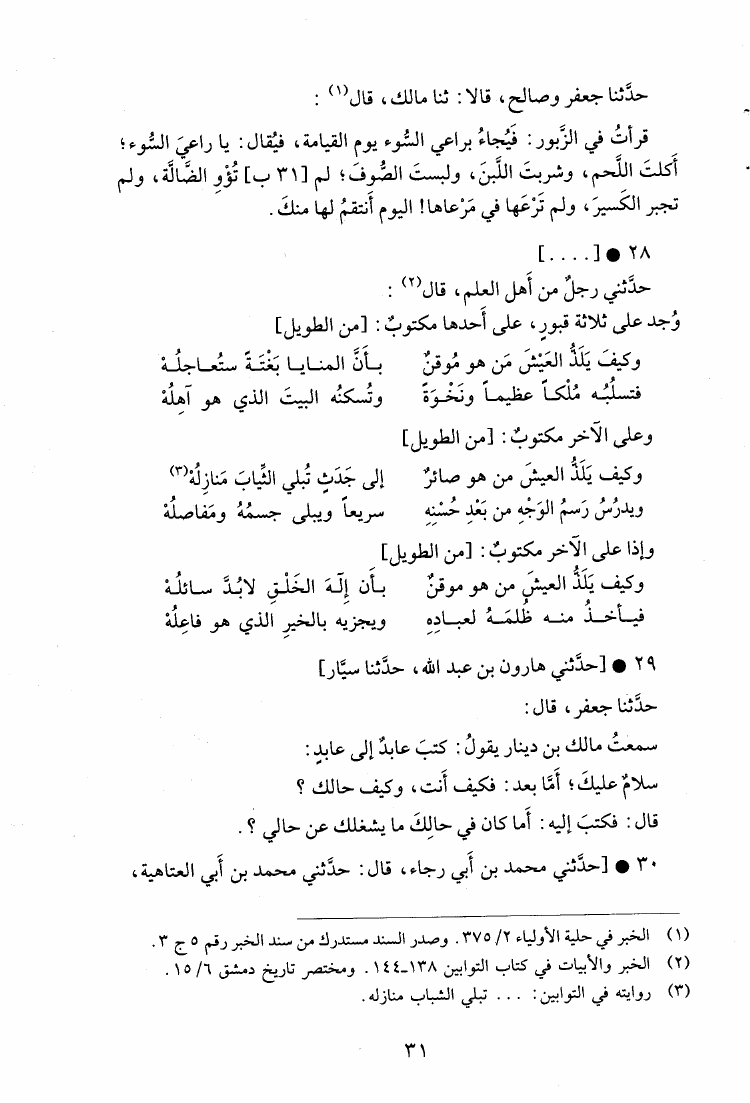 حدَّثنا جعفر وصالح، قالا: ثنا مالك، قال(١) :
قرأتُ في الزَّبور: فَيُجاءُ براعي السُّوء يوم القيامة، فيُقال: يا راعيَ السُّوء؛
أكلتَ اللَّحم، وشربتَ اللَّبنَ، ولبستَ الصُّوفَ؛ لم [٣١ ب] تُؤْوِ الضَّالَّة، ولم
تجبر الكَسيرَ، ولم تَرْعَها في مَرْعاها! اليوم أَنتقمُ لها منكَ.
٢٨ ● [. . . .]
حدَّثني رجلٌ من أهل العلم، قال(٢) :
وُجد على ثلاثة قبورٍ، على أَحدها مكتوبٌ: [من الطويل]
وكيفَ يَلَذُّ العَيْشَ مَن هو مُوقنٌ بـأَنَّ المنـايـا بَغْتَـةً ستُعـاجلُـهْ
فتسلُبُـه مُلْكـاً عظيمـاً ونَخْـوَةً وتُسكنُه البيتَ الذي هو آهِلُهْ
وعلى الآخر مكتوبٌ: [من الطويل]
وكيف يَلَذُّ العيشَ من هو صائرٌ إلى جَدَثٍ تُبلي الثِّيابَ مَنازِلُهْ(٣)
ويدرُسُ رَسمُ الوَجْهِ من بَعْدِ حُسْنِهِ سريعاً ويبلى جسمُهُ ومَفاصلُهْ
وإذا على الآخر مكتوبٌ: [من الطويل]
وكيف يَلَذُّ العيشَ من هو موقنٌ بـأن إلـهَ الخَلْـقِ لابُدَّ سـائلُـهْ
فيـأخـذُ منـه ظُلمَـهُ لعبـادِهِ ويجزيه بالخيرِ الذي هو فاعِلُهْ
٢٩ ● [حدَّثني هارون بن عبد الله، حدَّثنا سيَّار]
حدَّثنا جعفر، قال:
سمعتُ مالك بن دينار يقولُ: كتبَ عابدٌ إلى عابدٍ:
سلامٌ عليكَ؛ أمَّا بعد: فكيف أَنت، وكيف حالك ؟
قال: فكتبَ إليه: أما كان في حالِكَ ما يشغلك عن حالي ؟ .
٣٠ ● [حدَّثني محمد بن أَبي رجاء، قال: حدَّثني محمد بن أَبي العتاهية،
(١) الخبر في حلية الأولياء ٢/ ٣٧٥. وصدر السند مستدرك من سند الخبر رقم ٥ ج ٣.
(٢) الخبر والأبيات في كتاب التوابين ١٣٨-١٤٤. ومختصر تاريخ دمشق ٦/ ١٥.
(٣) روايته في التوابين: . . . تبلي الشباب منازله.
٣١